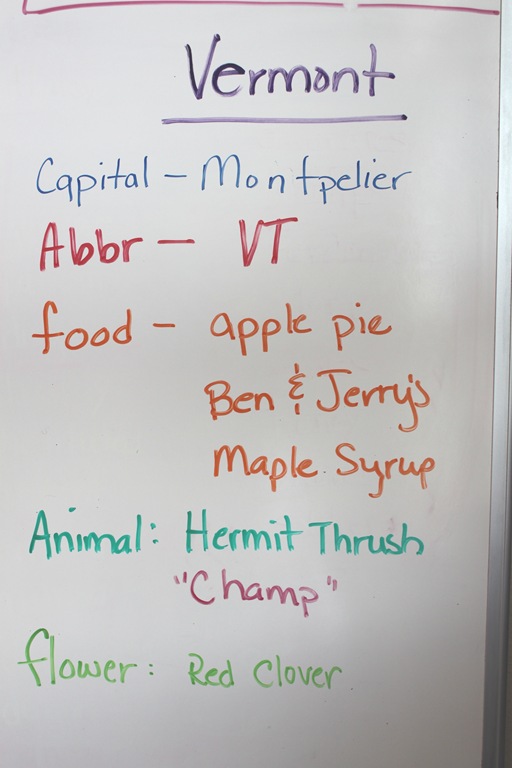 Vermont
Capital - Montpelier
Abbr - VT
food - apple pie
Ben & Jerry's
Maple Syrup
Animal: Hermit Thrush
"Champ"
flower: Red Clover